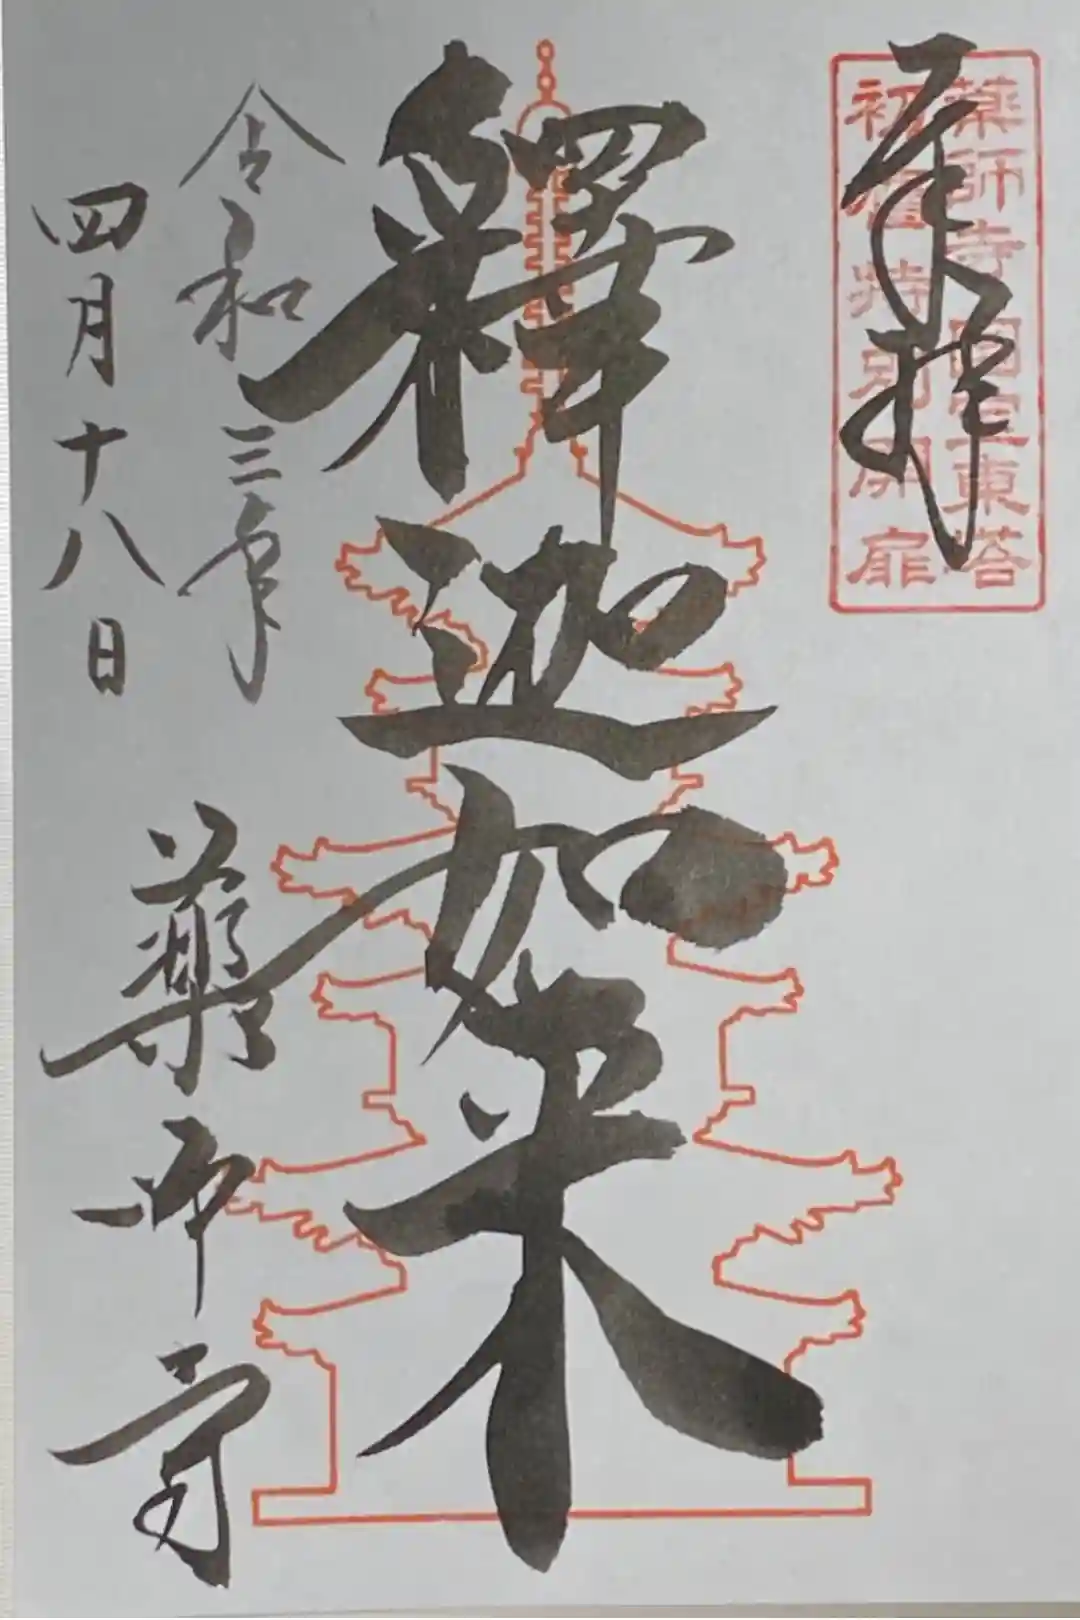 奉拝
薬師寺国宝東塔
初層特別開扉
釋迦如来
令和三年
四月十八日
薬師寺